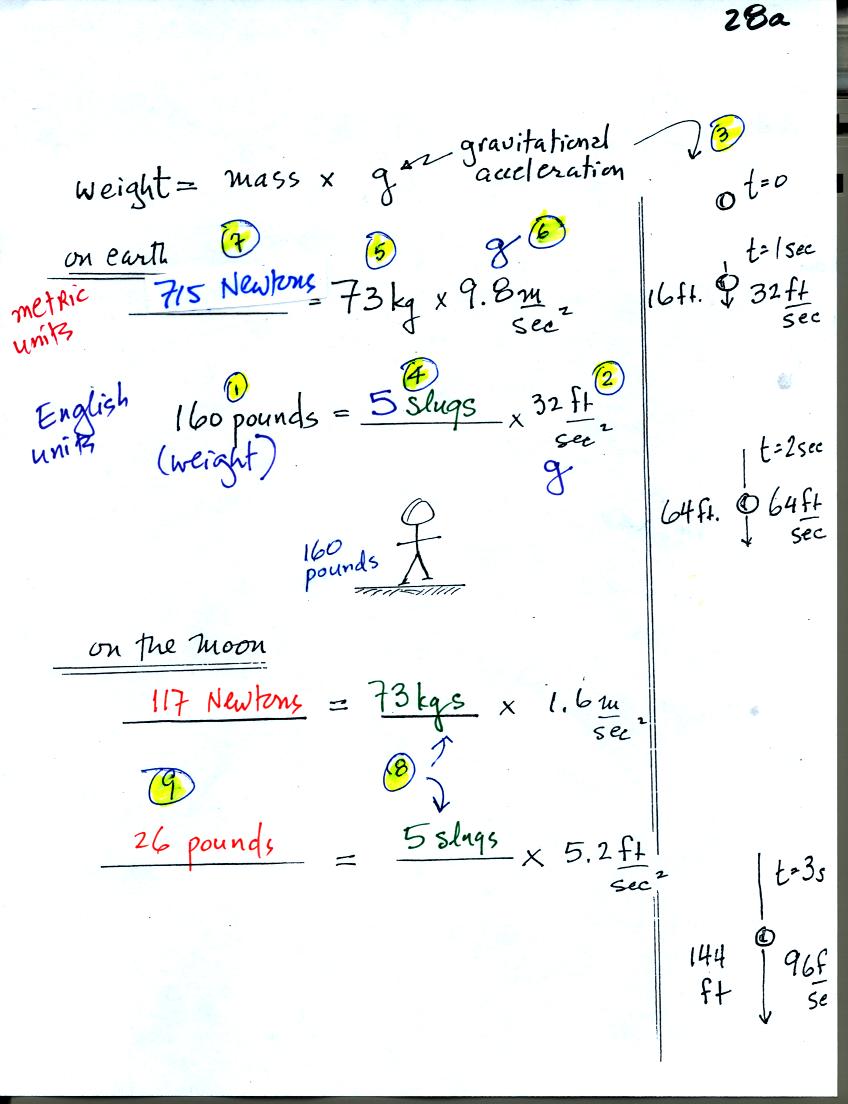 28a
gravitational
acceleration
③
weight = mass × g
on earth
⑦ ⑤ g ⑥
metric
units
715 Newtons = 73 kg × 9.8 m/sec²
① ④ ②
English
units
160 pounds = 5 slugs × 32 ft/sec²
(weight)
g
160
pounds
on the moon
117 Newtons = 73 kgs × 1.6 m/sec²
⑨ ⑧
26 pounds = 5 slugs × 5.2 ft/sec²
t=0
t=1 sec
16 ft. 32 ft/sec
t=2 sec
64 ft. 64 ft/sec
t=3s
144
ft
96f/se